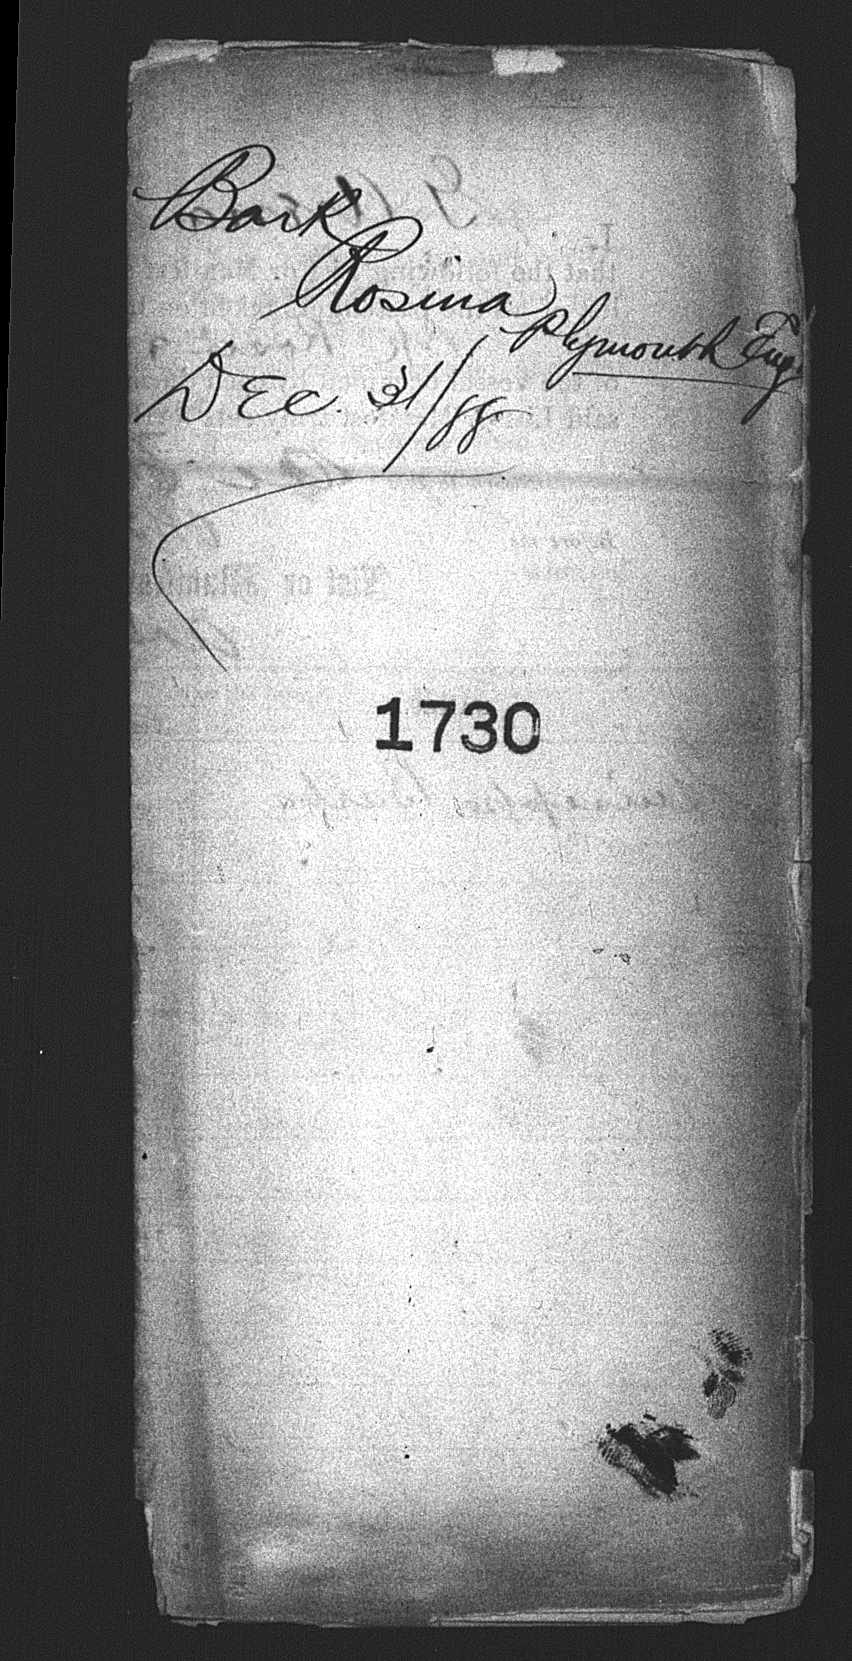 Bark
Rosina
Plymouth Eng.
Dec. 31/88
1730